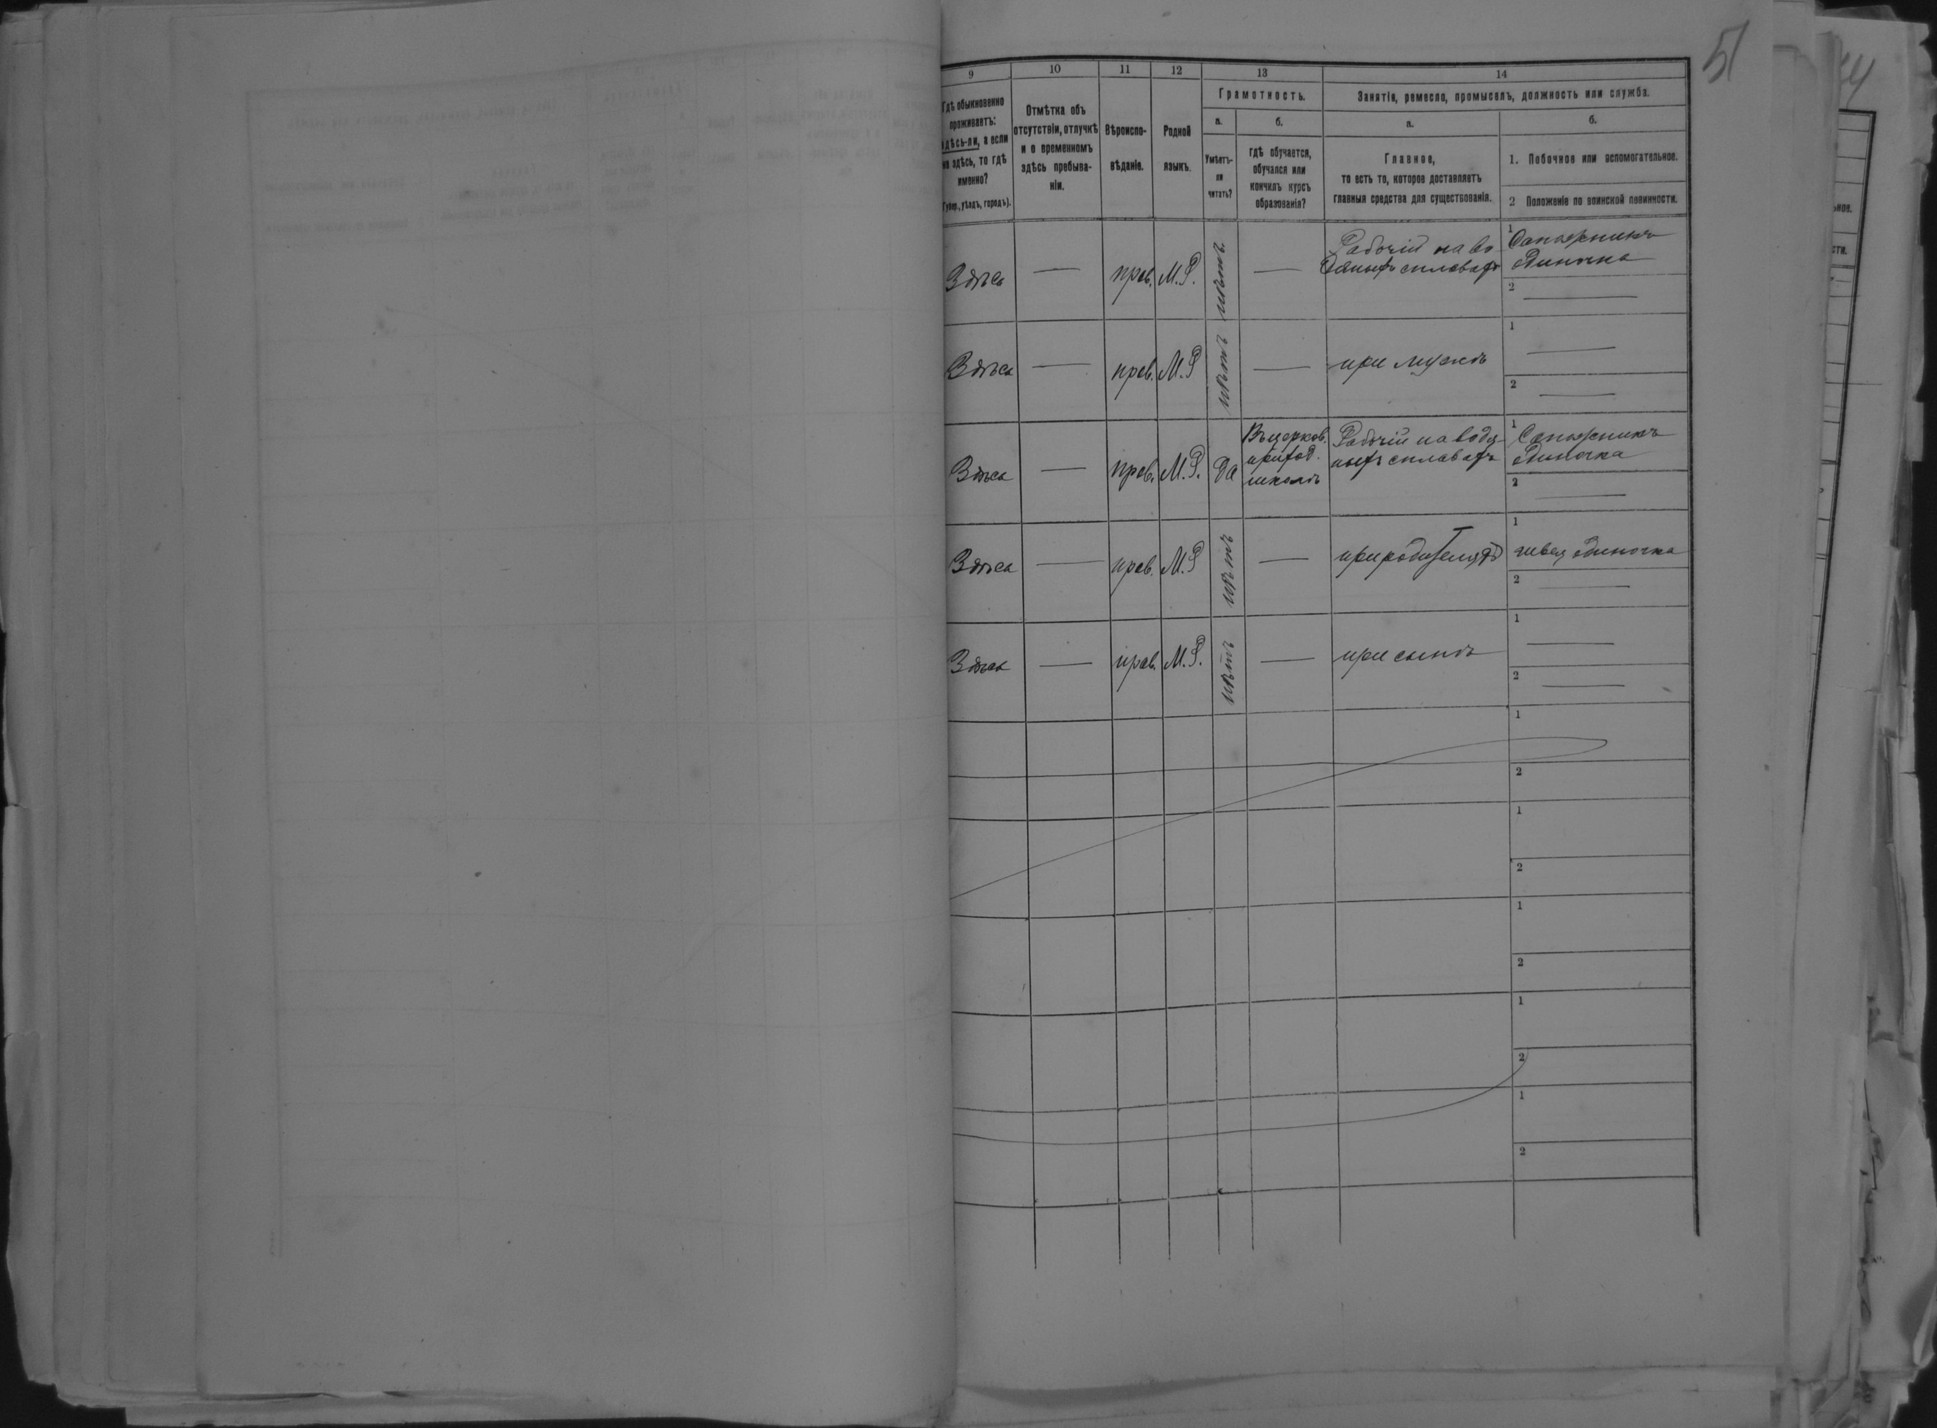 51
9 10 11 12 13 14
Гдѣ обыкновенно
проживаетъ:
здѣсь-ли, а если
не здѣсь, то гдѣ
именно?
(губер., уѣздъ, городъ).
Отмѣтка объ
отсутствіи, отлучкѣ
и о временномъ
здѣсь пребыва-
ніи.
Вѣроиспо-
вѣданіе.
Родной
языкъ.
Грамотность.
а. б.
Умѣетъ-
ли
читать?
гдѣ обучается,
обучался или
кончилъ курсъ
образованія?
Занятія, ремесло, промыселъ, должность или служба.
а. б.
Главное,
то есть то, которое доставляетъ
главныя средства для существованія.
1. Побочное или вспомогательное.
2 Положеніе по воинской повинности.
Здѣсь — прав. М.Р. нѣтъ — Рабочій на во
дяныхъ сплавахъ
1 Сапожникъ
одиночка
2 —
Здѣсь — прав. М.Р нѣтъ — при мужѣ
1 —
2 —
Здѣсь — прав. М.Р. да
Въ церков.
приход.
школѣ
Рабочій на водя
ныхъ сплавахъ
1 Сапожникъ
одиночка
2 —
Здѣсь — прав. М.Р нѣтъ — при родителяхъ
1 швея одиночка
2 —
Здѣсь — прав. М.Р. нѣтъ — при сынѣ
1 —
2 —
1
2
1
2
1
2
1
2
1
2